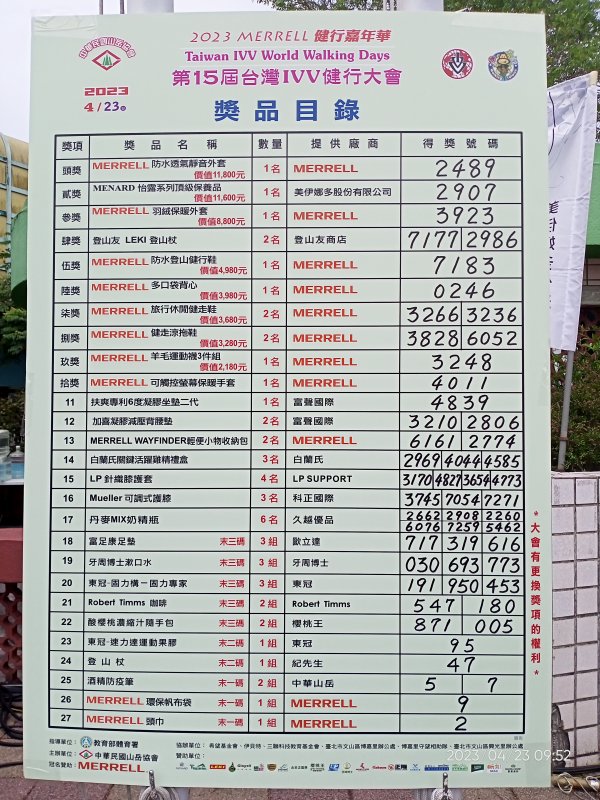 中華民國山岳協會
2023 MERRELL 健行嘉年華
Taiwan IVV World Walking Days
第15屆台灣IVV健行大會
2023
4/23㊐
獎品目錄
獎項 獎品名稱 數量 提供廠商 得獎號碼
頭獎 MERRELL 防水透氣靜音外套 價值11,800元 1名 MERRELL 2489
貳獎 MENARD 怡露系列頂級保養品 價值11,600元 1名 美伊娜多股份有限公司 2907
參獎 MERRELL 羽絨保暖外套 價值8,800元 1名 MERRELL 3923
肆獎 登山友 LEKI 登山杖 2名 登山友商店 7177 2986
伍獎 MERRELL 防水登山健行鞋 價值4,980元 1名 MERRELL 7183
陸獎 MERRELL 多口袋背心 價值3,980元 1名 MERRELL 0246
柒獎 MERRELL 旅行休閒健走鞋 價值3,680元 2名 MERRELL 3266 3236
捌獎 MERRELL 健走涼拖鞋 價值3,280元 2名 MERRELL 3828 6052
玖獎 MERRELL 羊毛運動襪3件組 價值2,180元 1名 MERRELL 3248
拾獎 MERRELL 可觸控螢幕保暖手套 1名 MERRELL 4011
11 扶爽專利6度凝膠坐墊二代 1名 富聲國際 4839
12 加喜凝膠減壓背腰墊 2名 富聲國際 3210 2806
13 MERRELL WAYFINDER輕便小物收納包 2名 MERRELL 6161 2774
14 白蘭氏關鍵活躍雞精禮盒 3名 白蘭氏 2969 4044 4585
15 LP 針織膝護套 4名 LP SUPPORT 3170 4827 3654 4773
16 Mueller 可調式護膝 3名 科正國際 3745 7054 7271
17 丹麥MIX奶精瓶 6名 久越優品 2662 2908 2260
6076 7259 5462
18 富足康足墊 末三碼 3組 歐立達 717 319 616
19 牙周博士漱口水 末三碼 3組 牙周博士 030 693 773
20 東冠-固力構-固力專家 末三碼 3組 東冠 191 950 453
21 Robert Timms 咖啡 末三碼 2組 Robert Timms 547 180
22 酸櫻桃濃縮汁隨手包 末三碼 2組 櫻桃王 871 005
23 東冠-速力達運動果膠 末二碼 1組 東冠 95
24 登山杖 末二碼 1組 紀先生 47
25 酒精防疫筆 末一碼 2組 中華山岳 5 7
26 MERRELL 環保帆布袋 末一碼 1組 MERRELL 9
27 MERRELL 頭巾 末一碼 1組 MERRELL 2
*大會有更換獎項的權利*
指導單位：教育部體育署
主辦單位：中華民國山岳協會
冠名贊助：MERRELL
協辦單位：希望基金會、伊貝特、三聯科技教育基金會、臺北市文山區博嘉里辦公處、博嘉里守望相助隊、臺北市文山區興光里辦公處
贊助單位：
2023-04-23 09:52